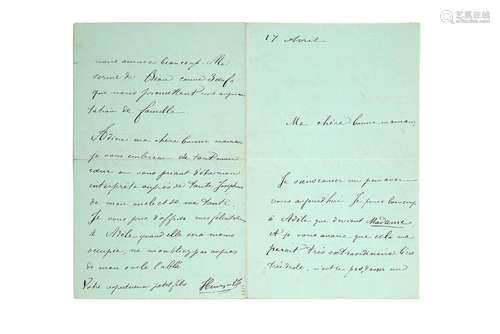 nous amuse beaucoup. Ma
serine de couve 3 oeufs
qui nous promettent une augmen
tation de famille.
Adieu ma chère bonne maman
je vous embrasse de tout mon
coeur en vous priant d'être mon
interprète auprès de tante Joséphine
de mon oncle et de ma tante.
Je vous prie d'offrir mes félicitations
à Adèle quand elle sera moins
occupée, ne m'oubliez pas auprès
de mon oncle l'abbé.
Votre respectueux petit fils Henry
17 Avril
Ma chère bonne maman,
Je veux causer un peu avec
vous aujourd'hui. Je pense beaucoup
à Adèle qui devient Madame
et je vous avoue que cela me
paraît très extraordinaire
très drôle, notre professeur